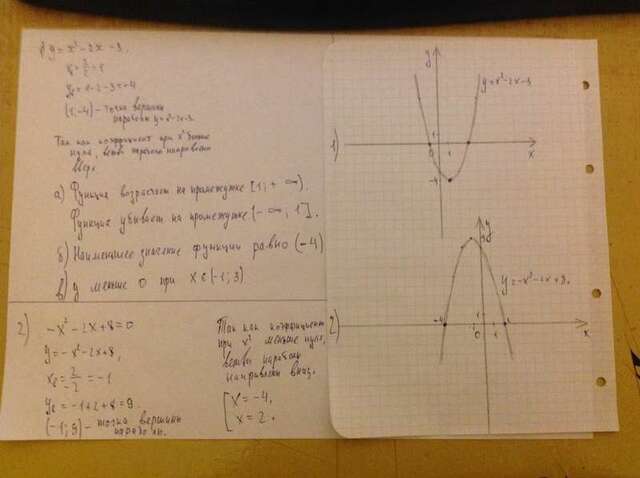 1) y = x² - 2x - 3.
x₀ = 2/2 = 1
y₀ = 1 - 2 - 3 = -4
(1; -4) - точка вершины
параболы y = x² - 2x - 3.
Так как коэффициент при x² больше
нуля, ветви параболы направлены
вверх.
а) Функция возрастает на промежутке [1; + ∞).
Функция убывает на промежутке (- ∞; 1].
б) Наименьшее значение функции равно (-4)
в) y меньше 0 при x ∈ (-1; 3)
2) -x² - 2x + 8 = 0
y = -x² - 2x + 8,
x₀ = 2/-2 = -1
y₀ = -1 + 2 + 8 = 9.
(-1; 9) - точка вершины
параболы.
Так как коэффициент
при x² меньше нуля,
ветви параболы
направлены вниз.
[ x = -4,
x = 2.
1)
y
y = x² - 2x - 3
1
0
1
x
-4
2)
y
y = -x² - 2x + 8.
1
-4
0
1
2
x